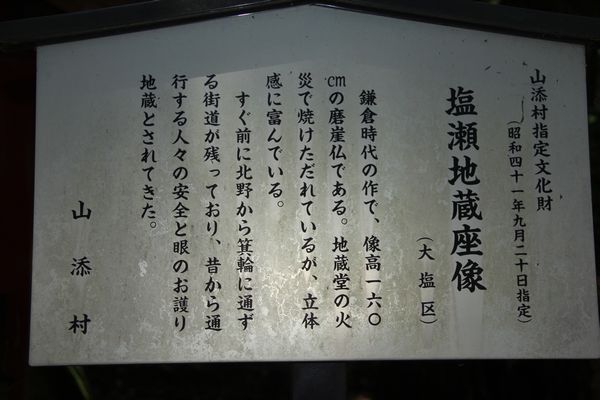 山添村指定文化財
（昭和四十一年九月二十日指定）
塩瀬地蔵座像
（大塩区）
鎌倉時代の作で、像高一六〇
cmの磨崖仏である。地蔵堂の火
災で焼けただれているが、立体
感に富んでいる。
すぐ前に北野から箕輪に通ず
る街道が残っており、昔から通
行する人々の安全と眼のお護り
地蔵とされてきた。
山添村